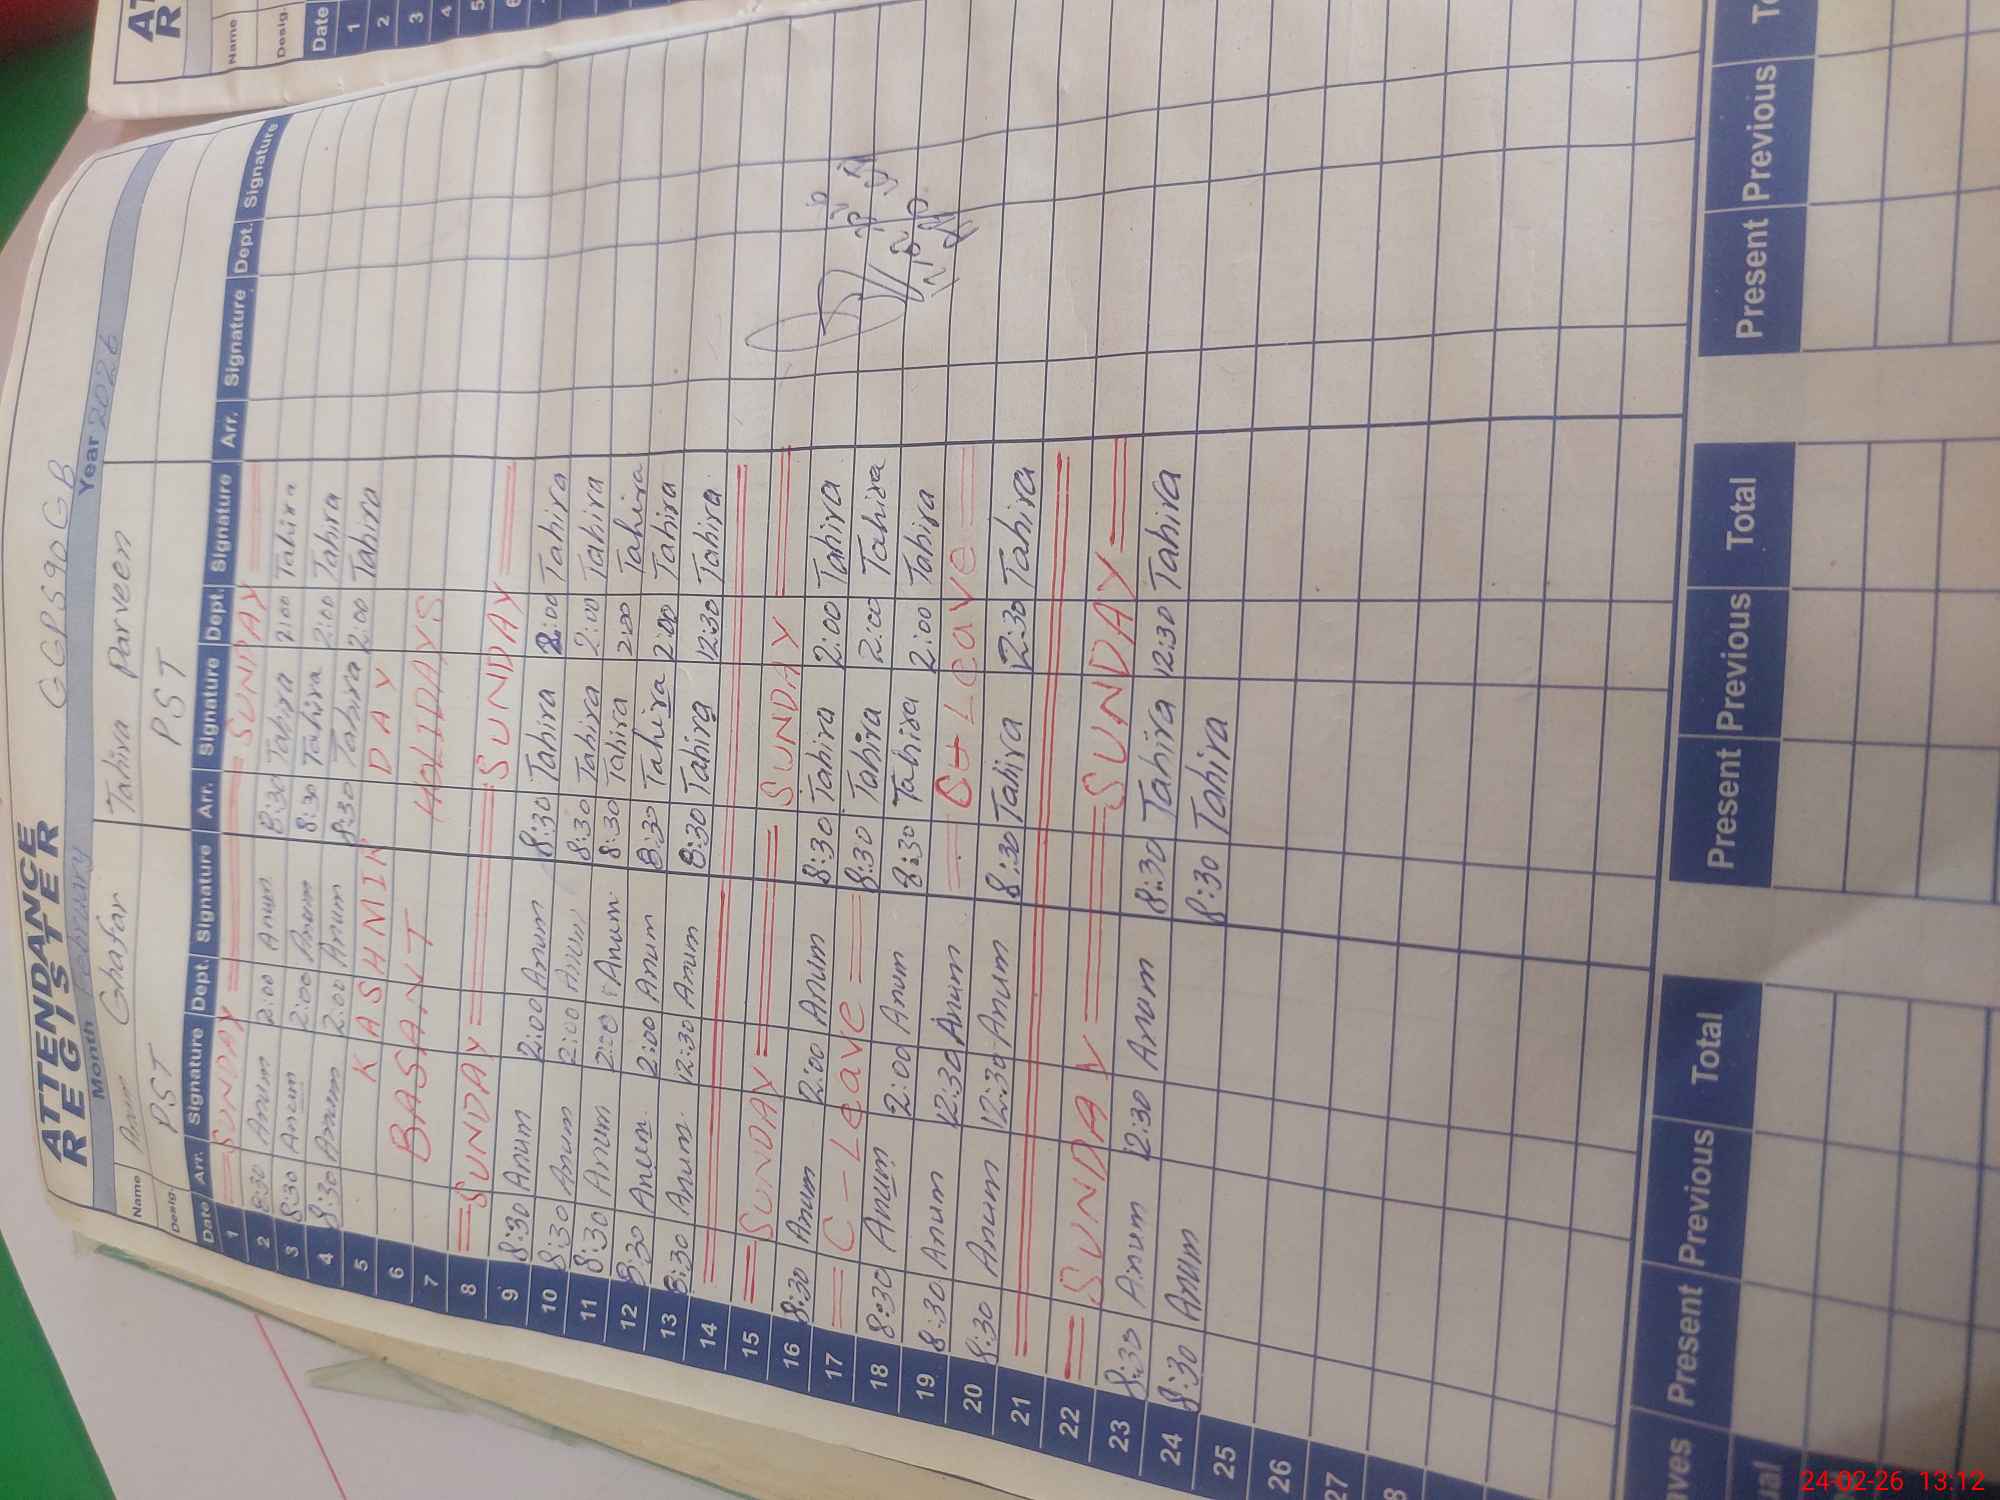 ATTENDANCE
REGISTER
GGPS 90 GB
Month February Year 2026
Name Anum Ghafar Tahira Parveen
Desig. PST PST
Date Arr. Signature Dept. Signature Arr. Signature Dept. Signature Arr. Signature Dept. Signature
1 SUNDAY SUNDAY
2 8:30 Anum 2:00 Anum 8:30 Tahira 2:00 Tahira
3 8:30 Anum 2:00 Anum 8:30 Tahira 2:00 Tahira
4 8:30 Anum 2:00 Anum 8:30 Tahira 2:00 Tahira
5 KASHMIR DAY
6 BASANT HOLIDAYS
7
8 SUNDAY SUNDAY
9 8:30 Anum 2:00 Anum 8:30 Tahira 2:00 Tahira
10 8:30 Anum 2:00 Anum 8:30 Tahira 2:00 Tahira
11 8:30 Anum 2:00 Anum 8:30 Tahira 2:00 Tahira
12 8:30 Anum 2:00 Anum 8:30 Tahira 2:00 Tahira
13 8:30 Anum 12:30 Anum 8:30 Tahira 12:30 Tahira
14
15 SUNDAY SUNDAY
16 8:30 Anum 2:00 Anum 8:30 Tahira 2:00 Tahira
17 C-Leave 8:30 Tahira 2:00 Tahira
18 8:30 Anum 2:00 Anum 8:30 Tahira 2:00 Tahira
19 8:30 Anum 12:30 Anum Leave
20 8:30 Anum 12:30 Anum 8:30 Tahira 12:30 Tahira
21
22 SUNDAY SUNDAY
23 8:30 Anum 12:30 Anum 8:30 Tahira 12:30 Tahira
24 8:30 Anum 8:30 Tahira
25
26
27
8
Present Previous Total Present Previous Total Present Previous
24-02-26 13:12
Name
Desig.
Date
1
2
3
4
5